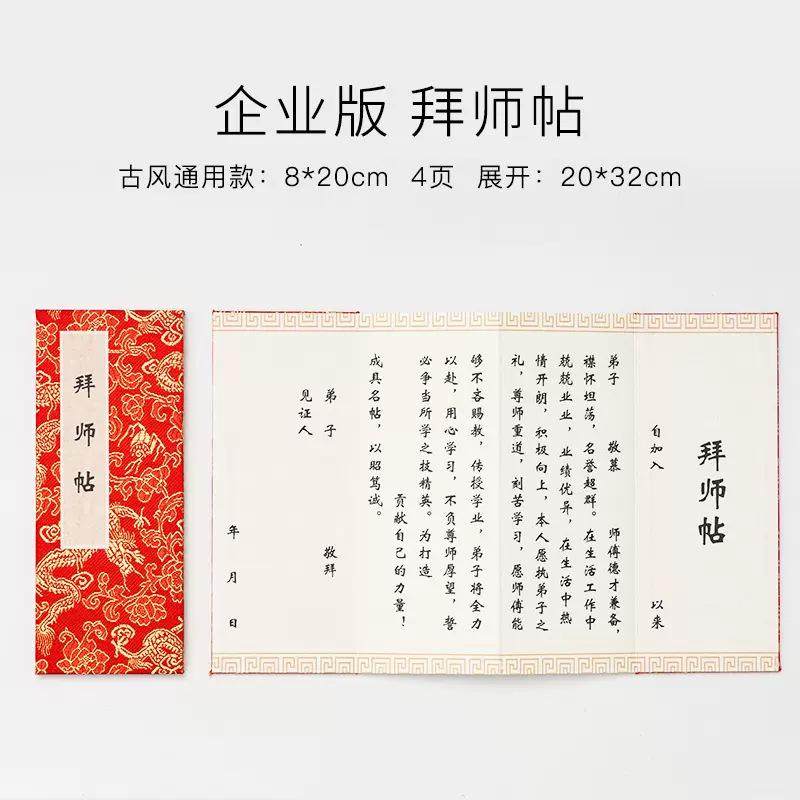 企业版 拜师帖
古风通用款：8*20cm 4页 展开：20*32cm
拜师帖
拜师帖
自加入 以来
弟子 敬慕 师傅德才兼备，
襟怀坦荡，名誉超群。在生活工作中
兢兢业业，业绩优异，在生活中热
情开朗，积极向上，本人愿执弟子之
礼，尊师重道，刻苦学习，愿师傅能
够不吝赐教，传授学业，弟子将全力
以赴，用心学习，不负尊师厚望，誓
必争当所学之技精英。为打造
贡献自己的力量！
成具名帖，以昭笃诚。
弟子 敬拜
见证人
年 月 日